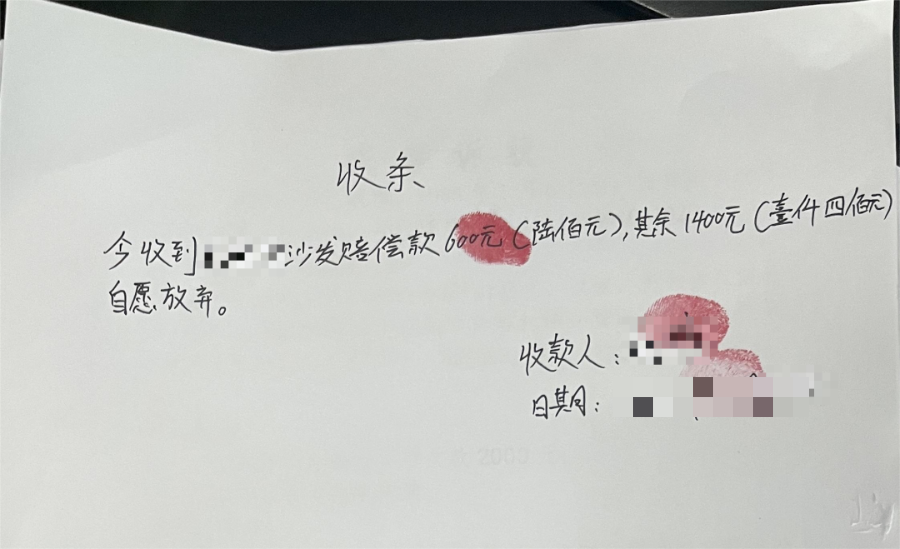 收条
今收到沙发赔偿款600元(陆佰元),其余1400元(壹仟四佰元)
自愿放弃。
收款人:
日期: